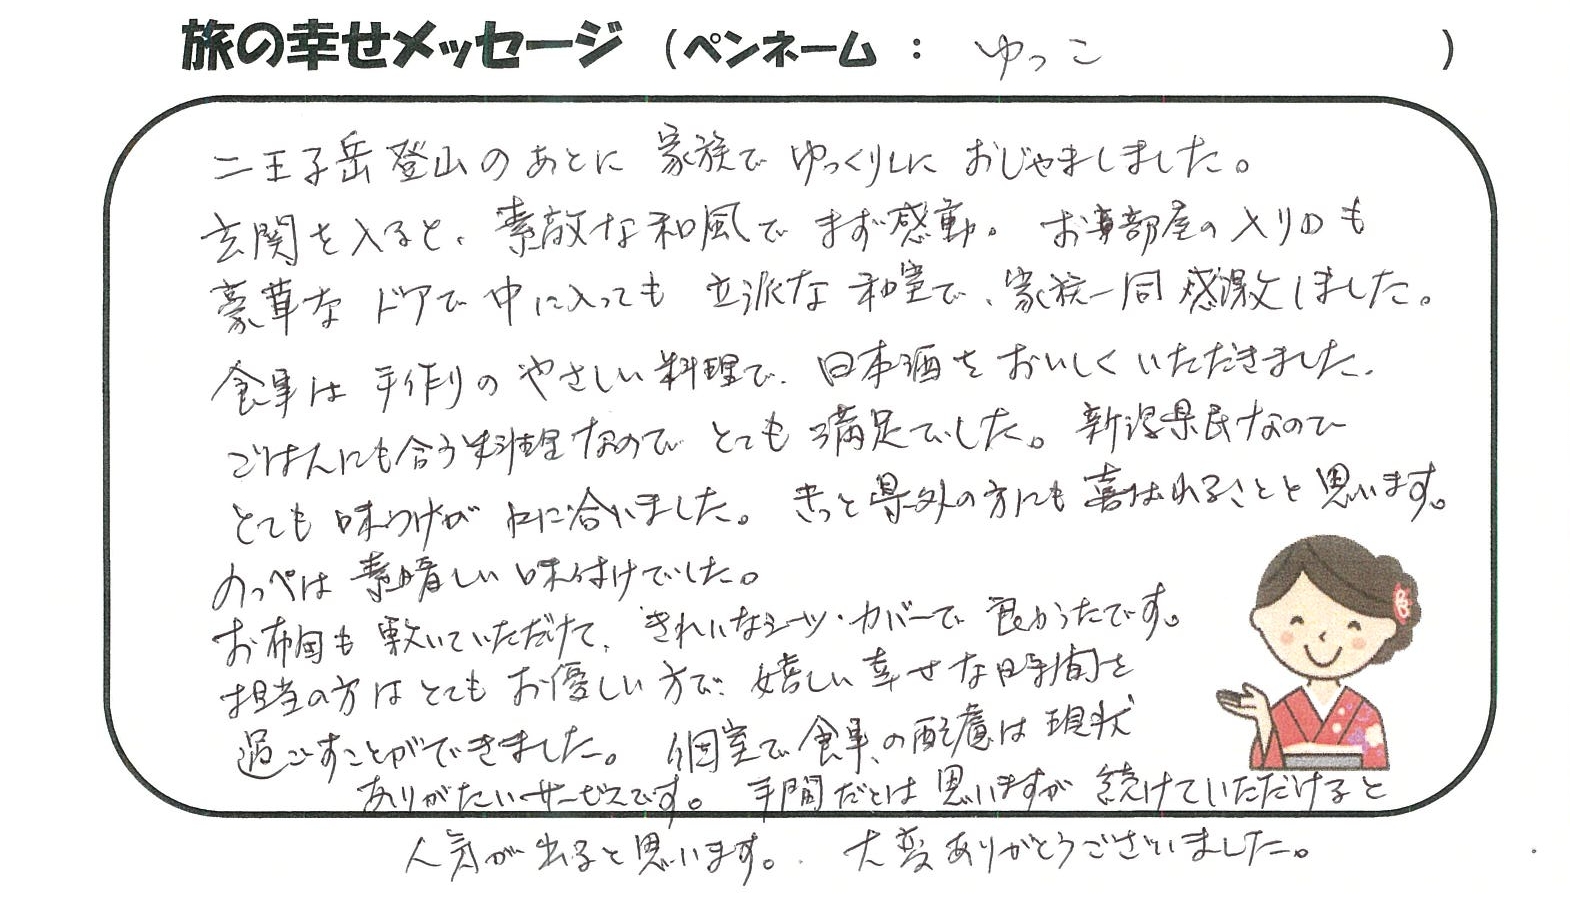 旅の幸せメッセージ （ペンネーム ： ゆっこ ）
二王子岳登山のあとに 家族で ゆっくりしに おじゃましました。
玄関を入ると、素敵な和風で まず感動。 お部屋の入り口も
豪華な ドアで 中に入っても 立派な 和室で、家族一同 感激しました。
食事は 手作りの やさしい 料理で、日本酒を おいしく いただきました。
ごはんにも合う料理なので とても 満足でした。 新潟県民なので
とても 味つけが 口に合いました。 きっと 県外の方にも 喜ばれることと 思います。
のっぺは 素晴しい 味付けでした。
お布団も 敷いていただけて、きれいなシーツ・カバーで 良かったです。
担当の方は とても お優しい 方で、嬉しい 幸せな 時間を
過ごすことができました。 個室で 食事、の配慮は 現状
ありがたいサービスです。 手間だとは 思いますが 続けていただけると
人気が 出ると 思います。 大変ありがとうございました。